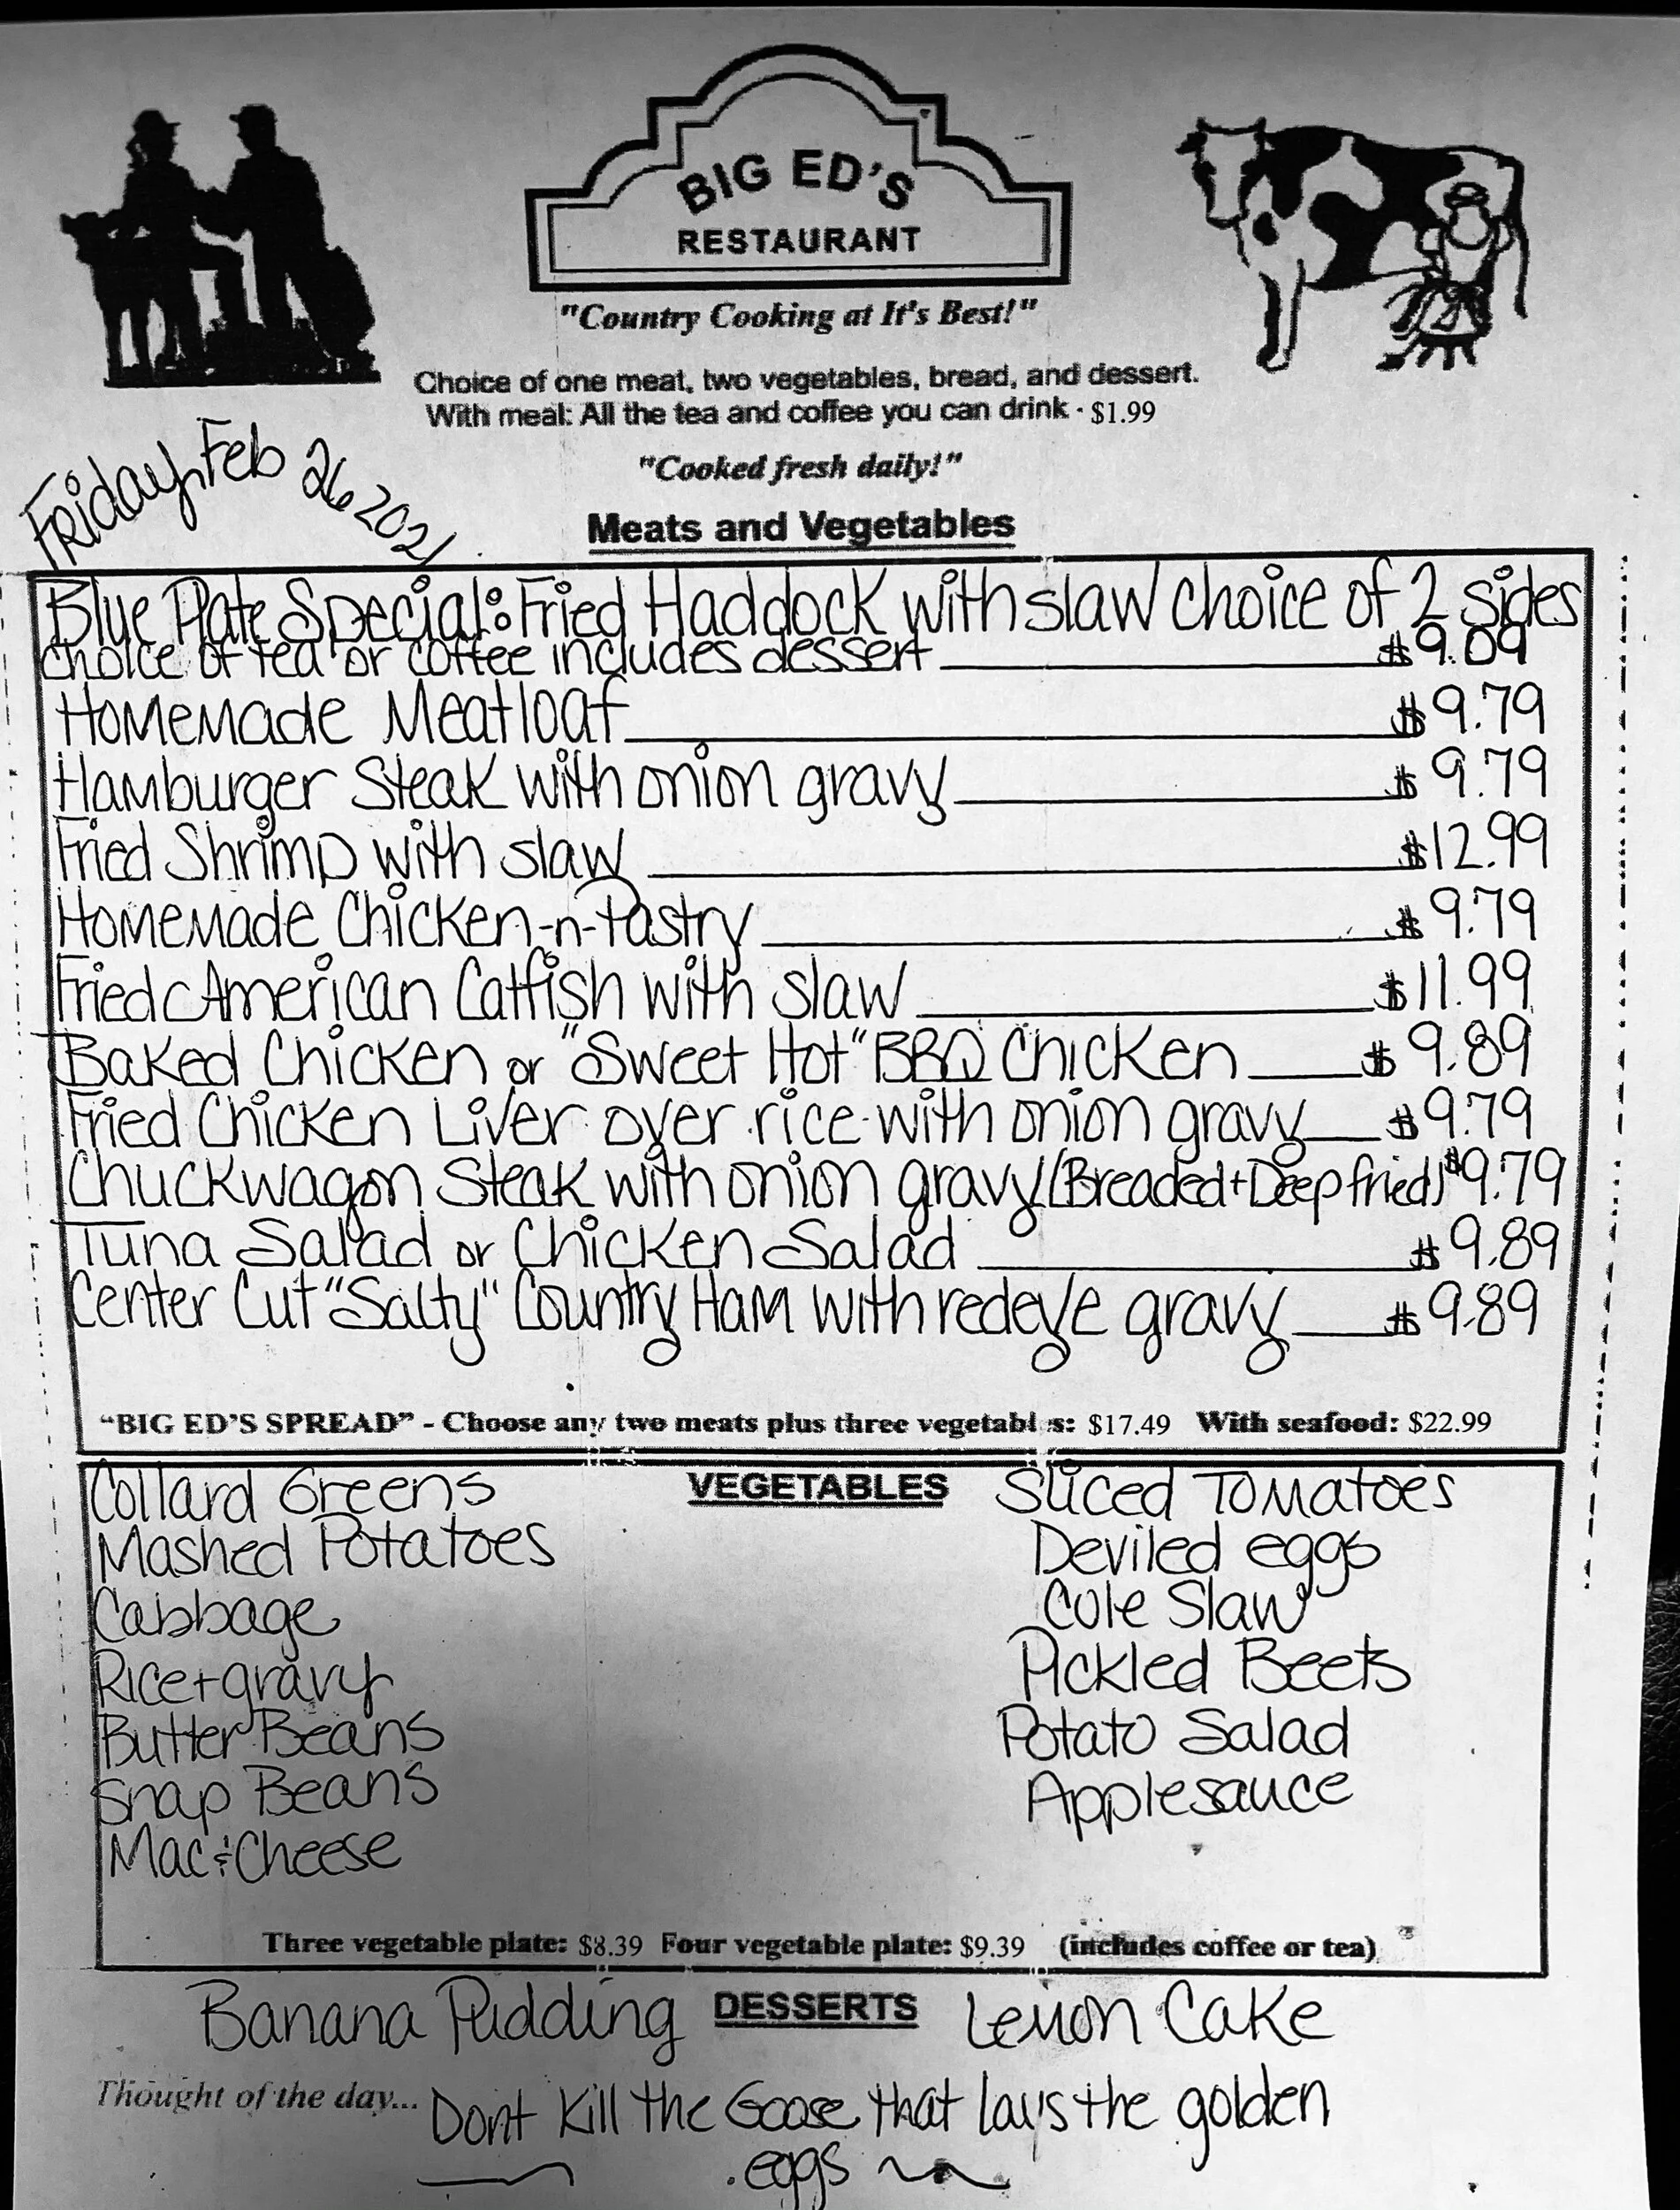 BIG ED'S
RESTAURANT
"Country Cooking at It's Best!"
Choice of one meat, two vegetables, bread, and dessert.
With meal: All the tea and coffee you can drink - $1.99
"Cooked fresh daily!"
Friday, Feb 26 2021
Meats and Vegetables
Blue Plate Special: Fried Haddock with slaw choice of 2 sides
choice of tea or coffee includes dessert $9.09
Homemade Meatloaf $9.79
Hamburger Steak with onion gravy $9.79
Fried Shrimp with slaw $12.99
Homemade Chicken-n-Pastry $9.79
Fried American Catfish with slaw $11.99
Baked Chicken or "Sweet Hot" BBQ Chicken $9.89
Fried Chicken Liver over rice with onion gravy $9.79
Chuckwagon Steak with onion gravy (Breaded+Deep fried) $9.79
Tuna Salad or Chicken Salad $9.89
Center Cut "Salty" Country Ham with redeye gravy $9.89
"BIG ED'S SPREAD" - Choose any two meats plus three vegetables: $17.49 With seafood: $22.99
VEGETABLES
Collard Greens
Mashed Potatoes
Cabbage
Rice+gravy
Butter Beans
Snap Beans
Mac & Cheese
Sliced Tomatoes
Deviled eggs
Cole Slaw
Pickled Beets
Potato Salad
Applesauce
Three vegetable plate: $8.39 Four vegetable plate: $9.39 (includes coffee or tea)
Banana Pudding DESSERTS Lemon Cake
Thought of the day... Dont Kill the Goose that lays the golden
eggs